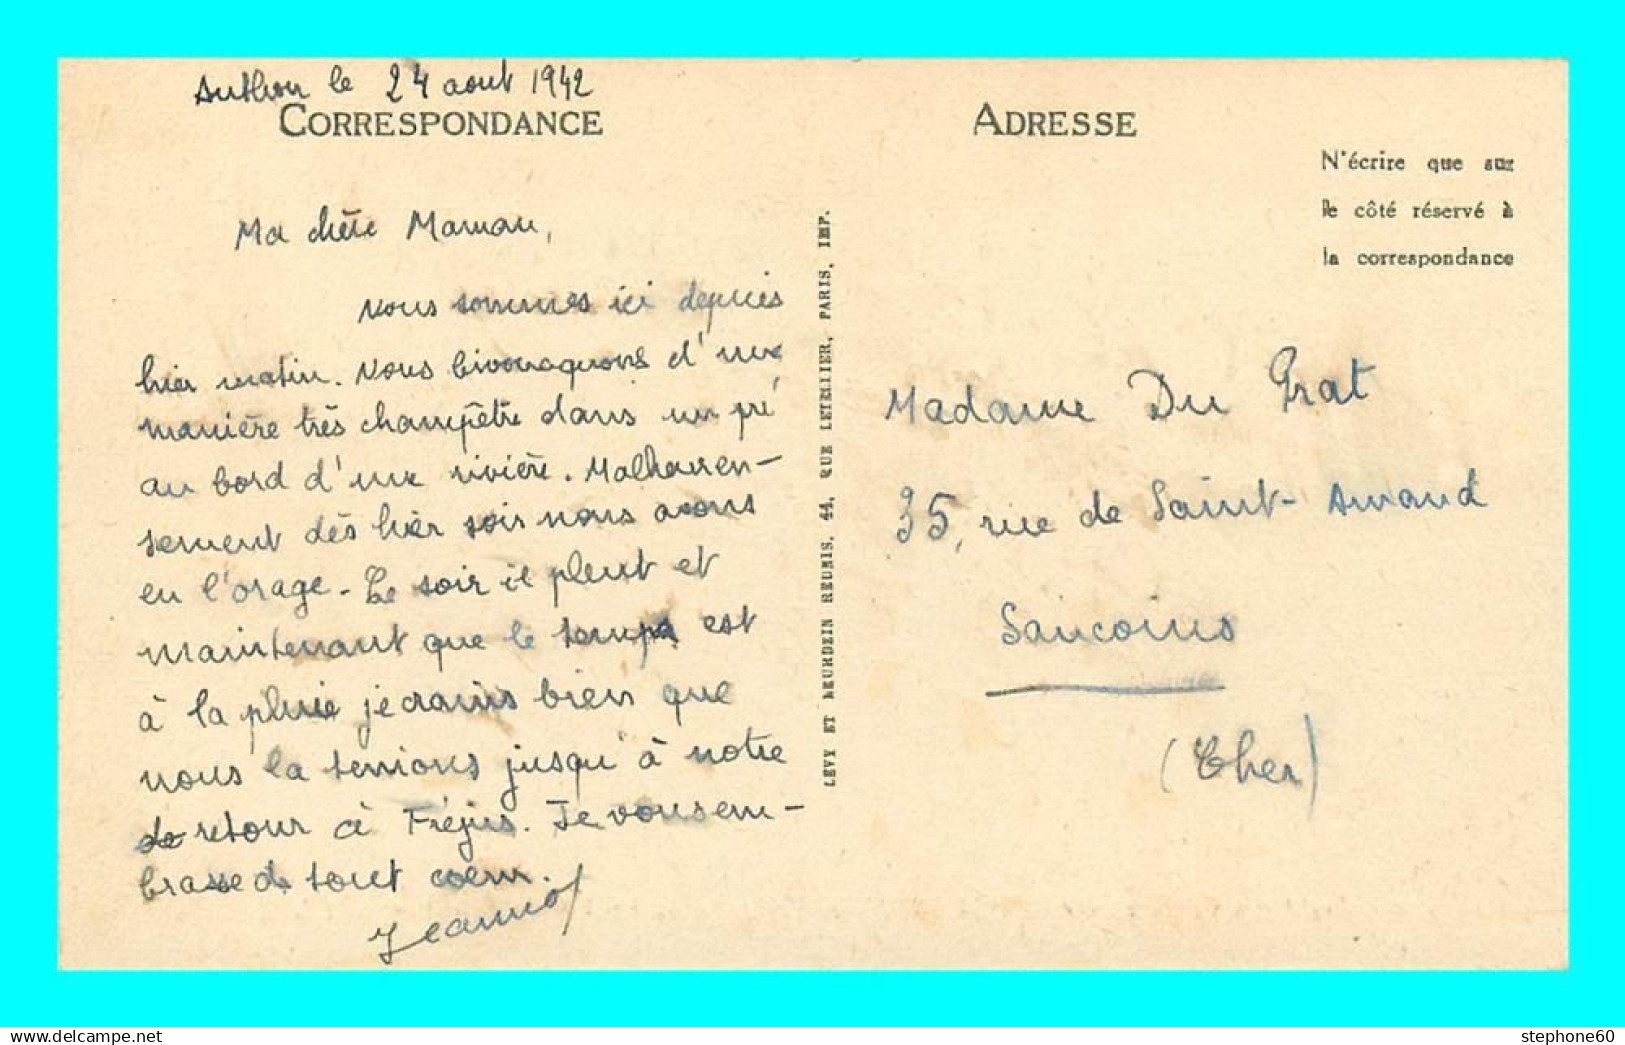 Authon le 24 aout 1942
CORRESPONDANCE
Ma chère Maman,
Nous sommes ici depuis
hier matin. Nous bivouaquons d'une
manière très champêtre dans un pré
au bord d'une rivière. Malheureu-
sement dès hier soir nous avons
eu l'orage. Le soir il pleut et
maintenant que le temps est
à la pluie je crains bien que
nous la tenions jusqu'à notre
retour à Fréjus. Je vous em-
brasse de tout coeur.
Jeannot
LEVY ET NEURDEIN REUNIS, 44, RUE LETELLIER, PARIS, IMP.
ADRESSE
N'écrire que sur
le côté réservé à
la correspondance
Madame Du Prat
35, rue de Saint-Amand
Sancoins
(Cher)
stephone60